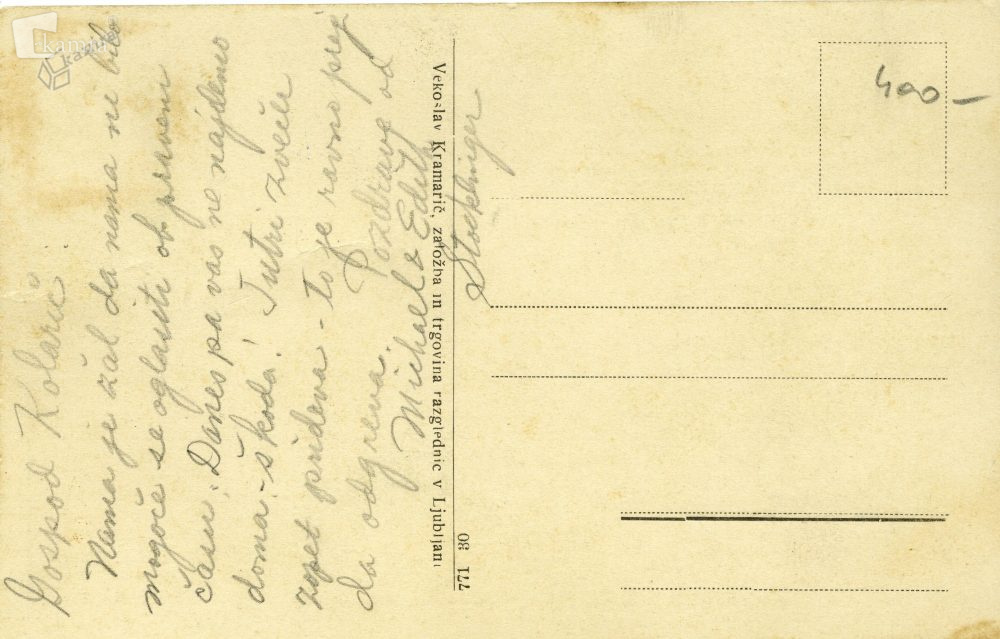 Gospod Kolarič
Nama je žal da nama ni bilo
mogoče se oglasiti ob pravem
času. Danes pa vas ne najdemo
doma - škoda! Jutri zvečer
zopet prideva - to je ravno prej
da odgreva.
Pozdrave od
Michael & Edith
Stocklinger
Vekoslav Kramarič, založba in trgovina razglednic v Ljubljani
30 771
400-
kamra
kamra